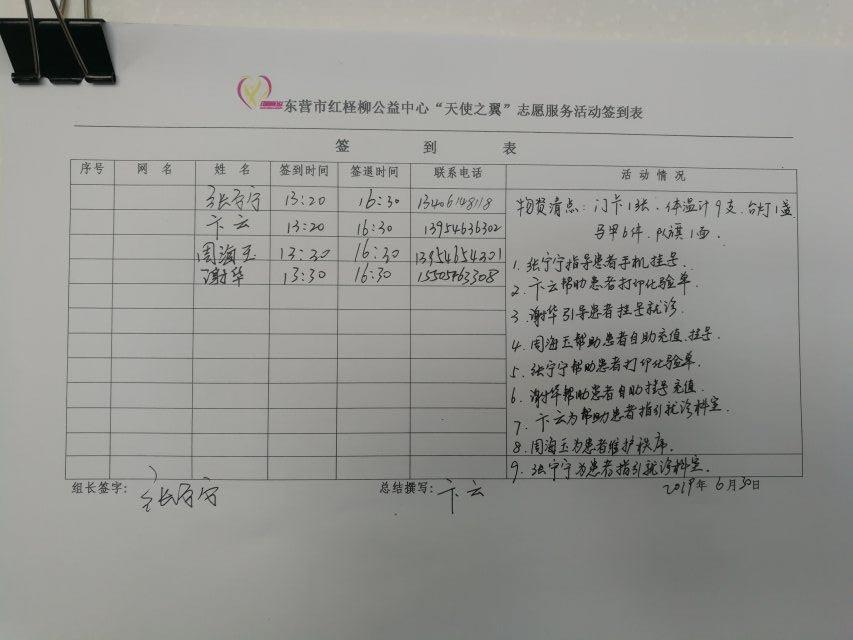 东营市红柽柳公益中心“天使之翼”志愿服务活动签到表
签 到 表
序号 网 名 姓 名 签到时间 签退时间 联系电话 活 动 情 况
张宁宁 13:20 16:30 13406148118
卞云 13:20 16:30 13954636302
周海玉 13:30 16:30 13954654301
谢华 13:30 16:30 15505463308
物资清点：门卡1张、体温计9支、台灯1盏
马甲6件、队旗1面.
1. 张宁宁指导患者手机挂号.
2. 卞云帮助患者打印化验单.
3. 谢华引导患者挂号就诊.
4. 周海玉帮助患者自助充值、挂号.
5. 张宁宁帮助患者打印化验单.
6. 谢华帮助患者自助挂号充值.
7. 卞云为帮助患者指引就诊科室.
8. 周海玉为患者维护秩序.
9. 张宁宁为患者指引就诊科室.
组长签字： 张宁宁 总结撰写： 卞云 2019年6月30日